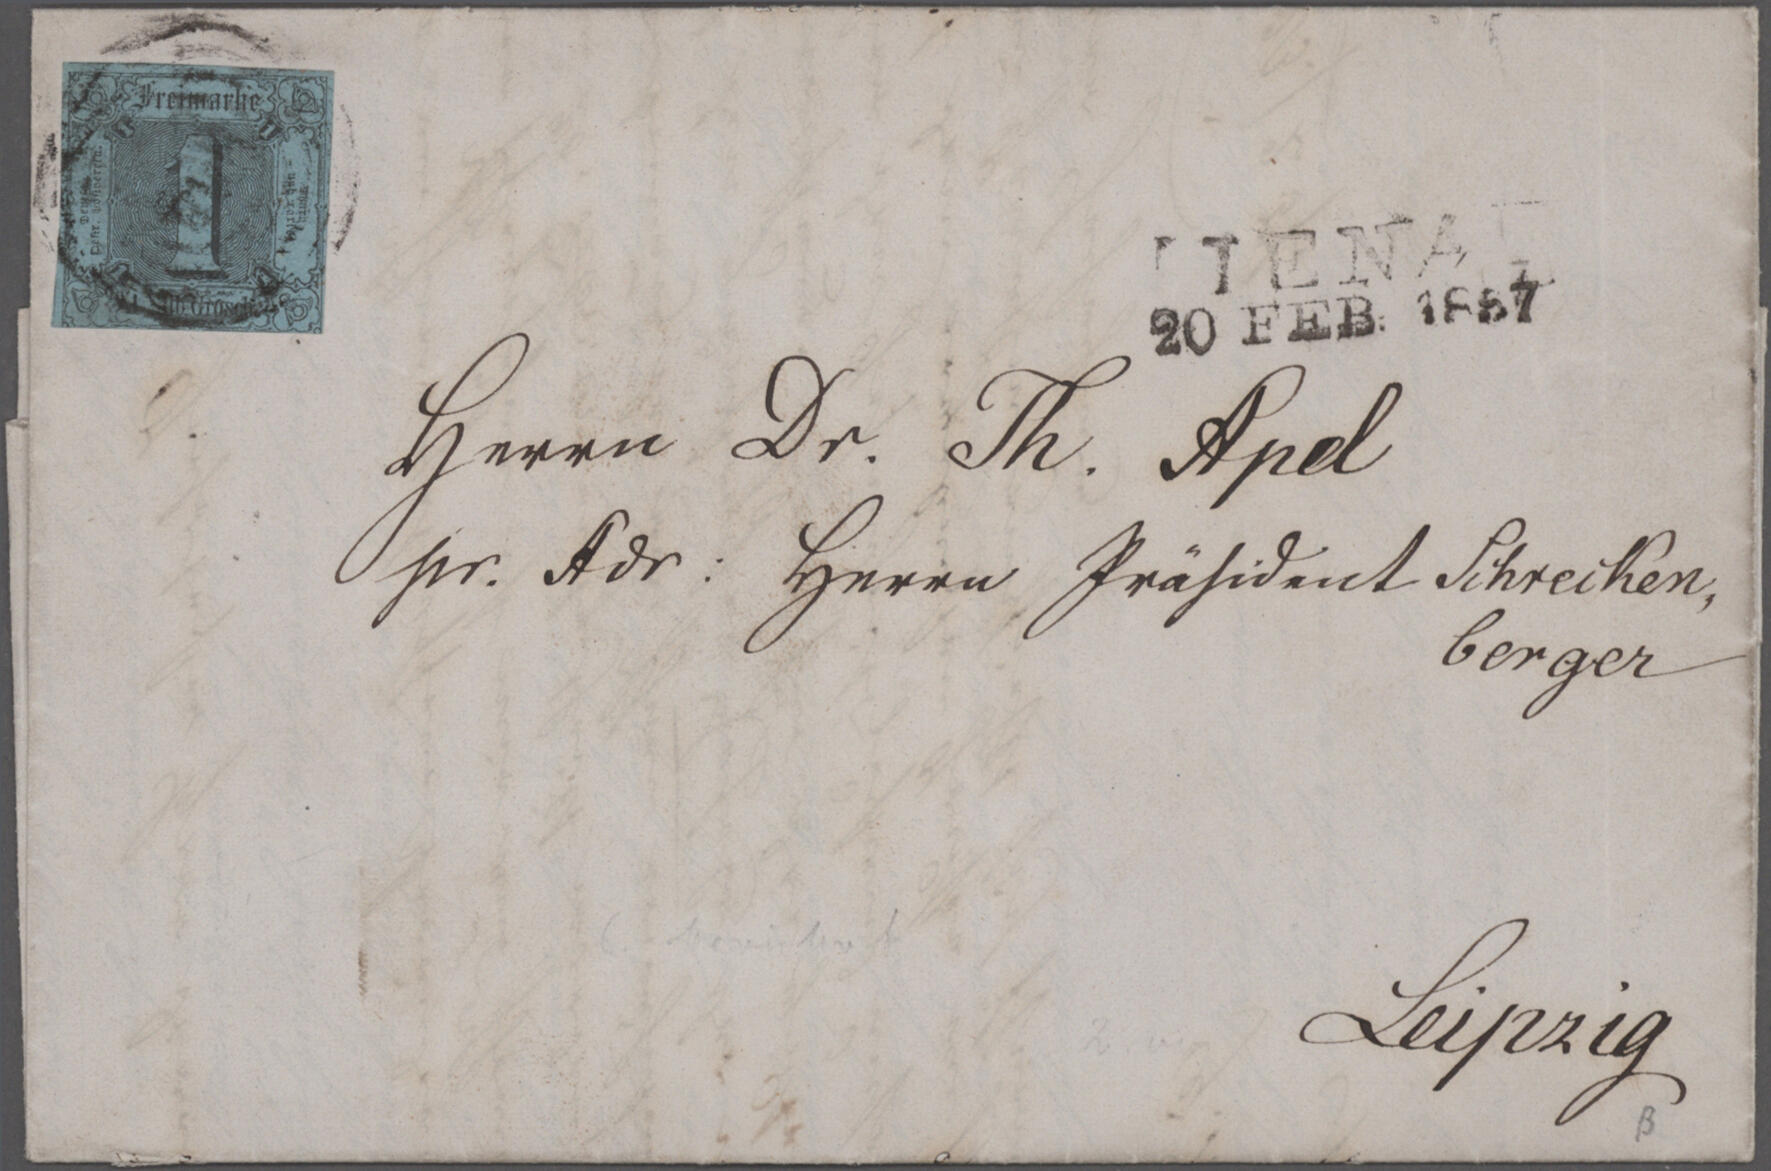 Freimarke
1
IENA
20 FEB. 1857
Herrn Dr. Th. Apel
pr. Adr: Herrn Präsident Schrecken,
berger
Leipzig
B